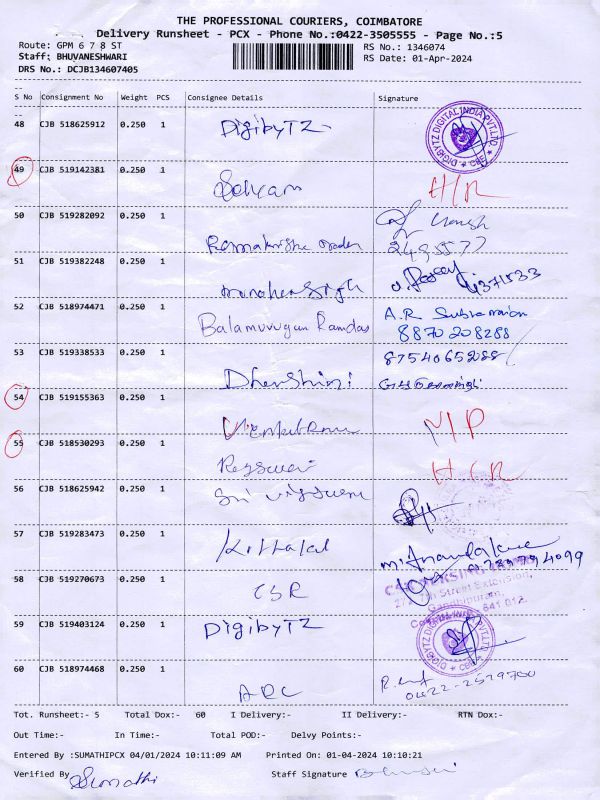 THE PROFESSIONAL COURIERS, COIMBATORE
Delivery Runsheet - PCX - Phone No.:0422-3505555 - Page No.:5
Route: GPM 6 7 8 ST
RS No.: 1346074
Staff: BHUVANESHWARI
RS Date: 01-Apr-2024
DRS No.: DCJB134607405
S No Consignment No Weight PCS Consignee Details Signature
48 CJB 518625912 0.250 1 DigibyTZ
DIGIBYTZ DIGITAL INDIA PVT.LTD CBE
49 CJB 519142381 0.250 1
50 CJB 519282092 0.250 1
51 CJB 519382248 0.250 1
52 CJB 518974471 0.250 1 Balamurugan Ramdas A.R. Subramanian
8870208288
53 CJB 519338533 0.250 1 8754065288
Dharshini
54 CJB 519155363 0.250 1
55 CJB 518530293 0.250 1
56 CJB 518625942 0.250 1 Sri
57 CJB 519283473 0.250 1
58 CJB 519270673 0.250 1 CSR
7th Street Extension,
Gandhipuram,
641 012.
59 CJB 519403124 0.250 1 DigibyTZ
DIGIBYTZ DIGITAL INDIA PVT.LTD CBE
60 CJB 518974468 0.250 1 ARC
0422-2529700
Tot. Runsheet:- 5 Total Dox:- 60 I Delivery:- II Delivery:- RTN Dox:-
Out Time:- In Time:- Total POD:- Delvy Points:-
Entered By :SUMATHIPCX 04/01/2024 10:11:09 AM Printed On: 01-04-2024 10:10:21
Verified By Sumathi Staff Signature